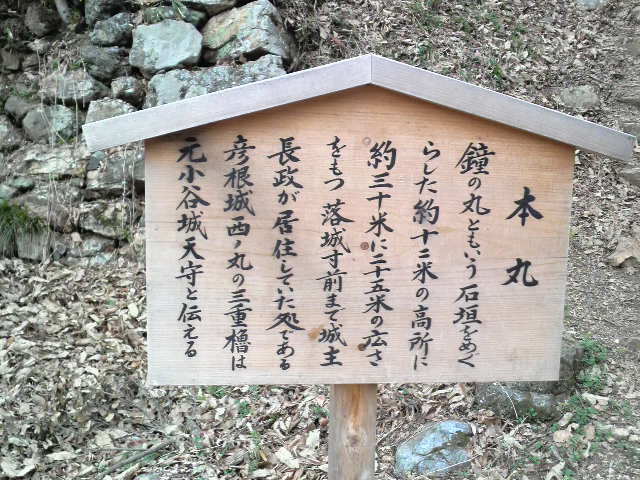 本丸
鐘の丸ともいう 石垣をめぐ
らした約十二米の高所に
約三十米に二十五米の広さ
をもつ 落城寸前まで城主
長政が居住していた処である
彦根城西ノ丸の三重櫓は
元小谷城天守と伝える